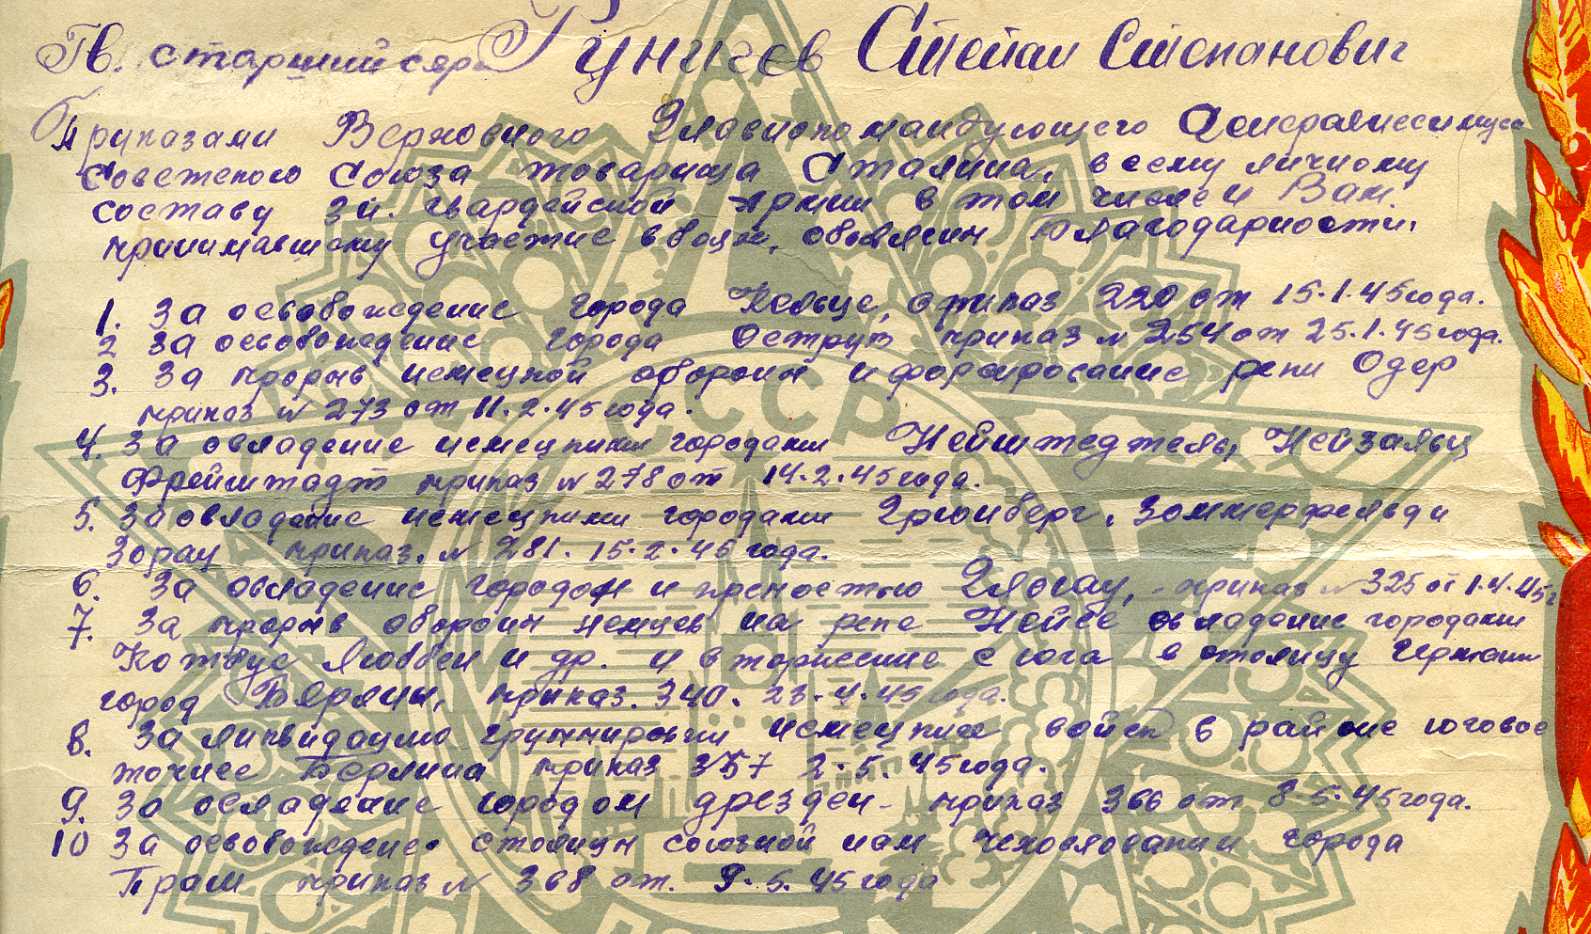 Гв. старший серж Гуничев Степан Степанович
Приказами Верховного Главнокомандующего Генералиссимуса
Советского Союза товарища Сталина, всему личному
составу 3й. гвардейской Армии в том числе и Вам.
принимавшему участие в боях, объявлены Благодарности.
1. За освобождение города Кельце, приказ 220 от 15.1.45 года.
2 За освобождение города Острув приказ № 254 от 25.1.45 года.
3. За прорыв немецкой обороны и форсирование реки Одер
приказ № 273 от 11.2.45 года.
4. За овладение немецкими городами Нейштедтель, Нейзальц
Фрейштадт приказ № 278 от 14.2.45 года.
5. За овладение немецкими городами Грюнберг, Зоммерфельд и
Зорау приказ. № 281. 15.2.45 года.
6. За овладение городом и крепостью Глогау, - приказ № 325 от 1.4.45г
7. За прорыв обороны немцев на реке Нейсе овладение городами
Котбус Люббен и др. и вторжение с юга в столицу Германии
город Берлин, приказ. 340. 23.4.45 года.
8. За ликвидацию группировки немецких войск в районе юговос
точнее Берлина приказ 357 2.5.45 года.
9. За овладение городом дрезден - приказ 366 от 8.5.45 года.
10 За освобождение столицы союзной нам Чехословакии города
Праги приказ № 368 от. 9.5.45 года
СССР